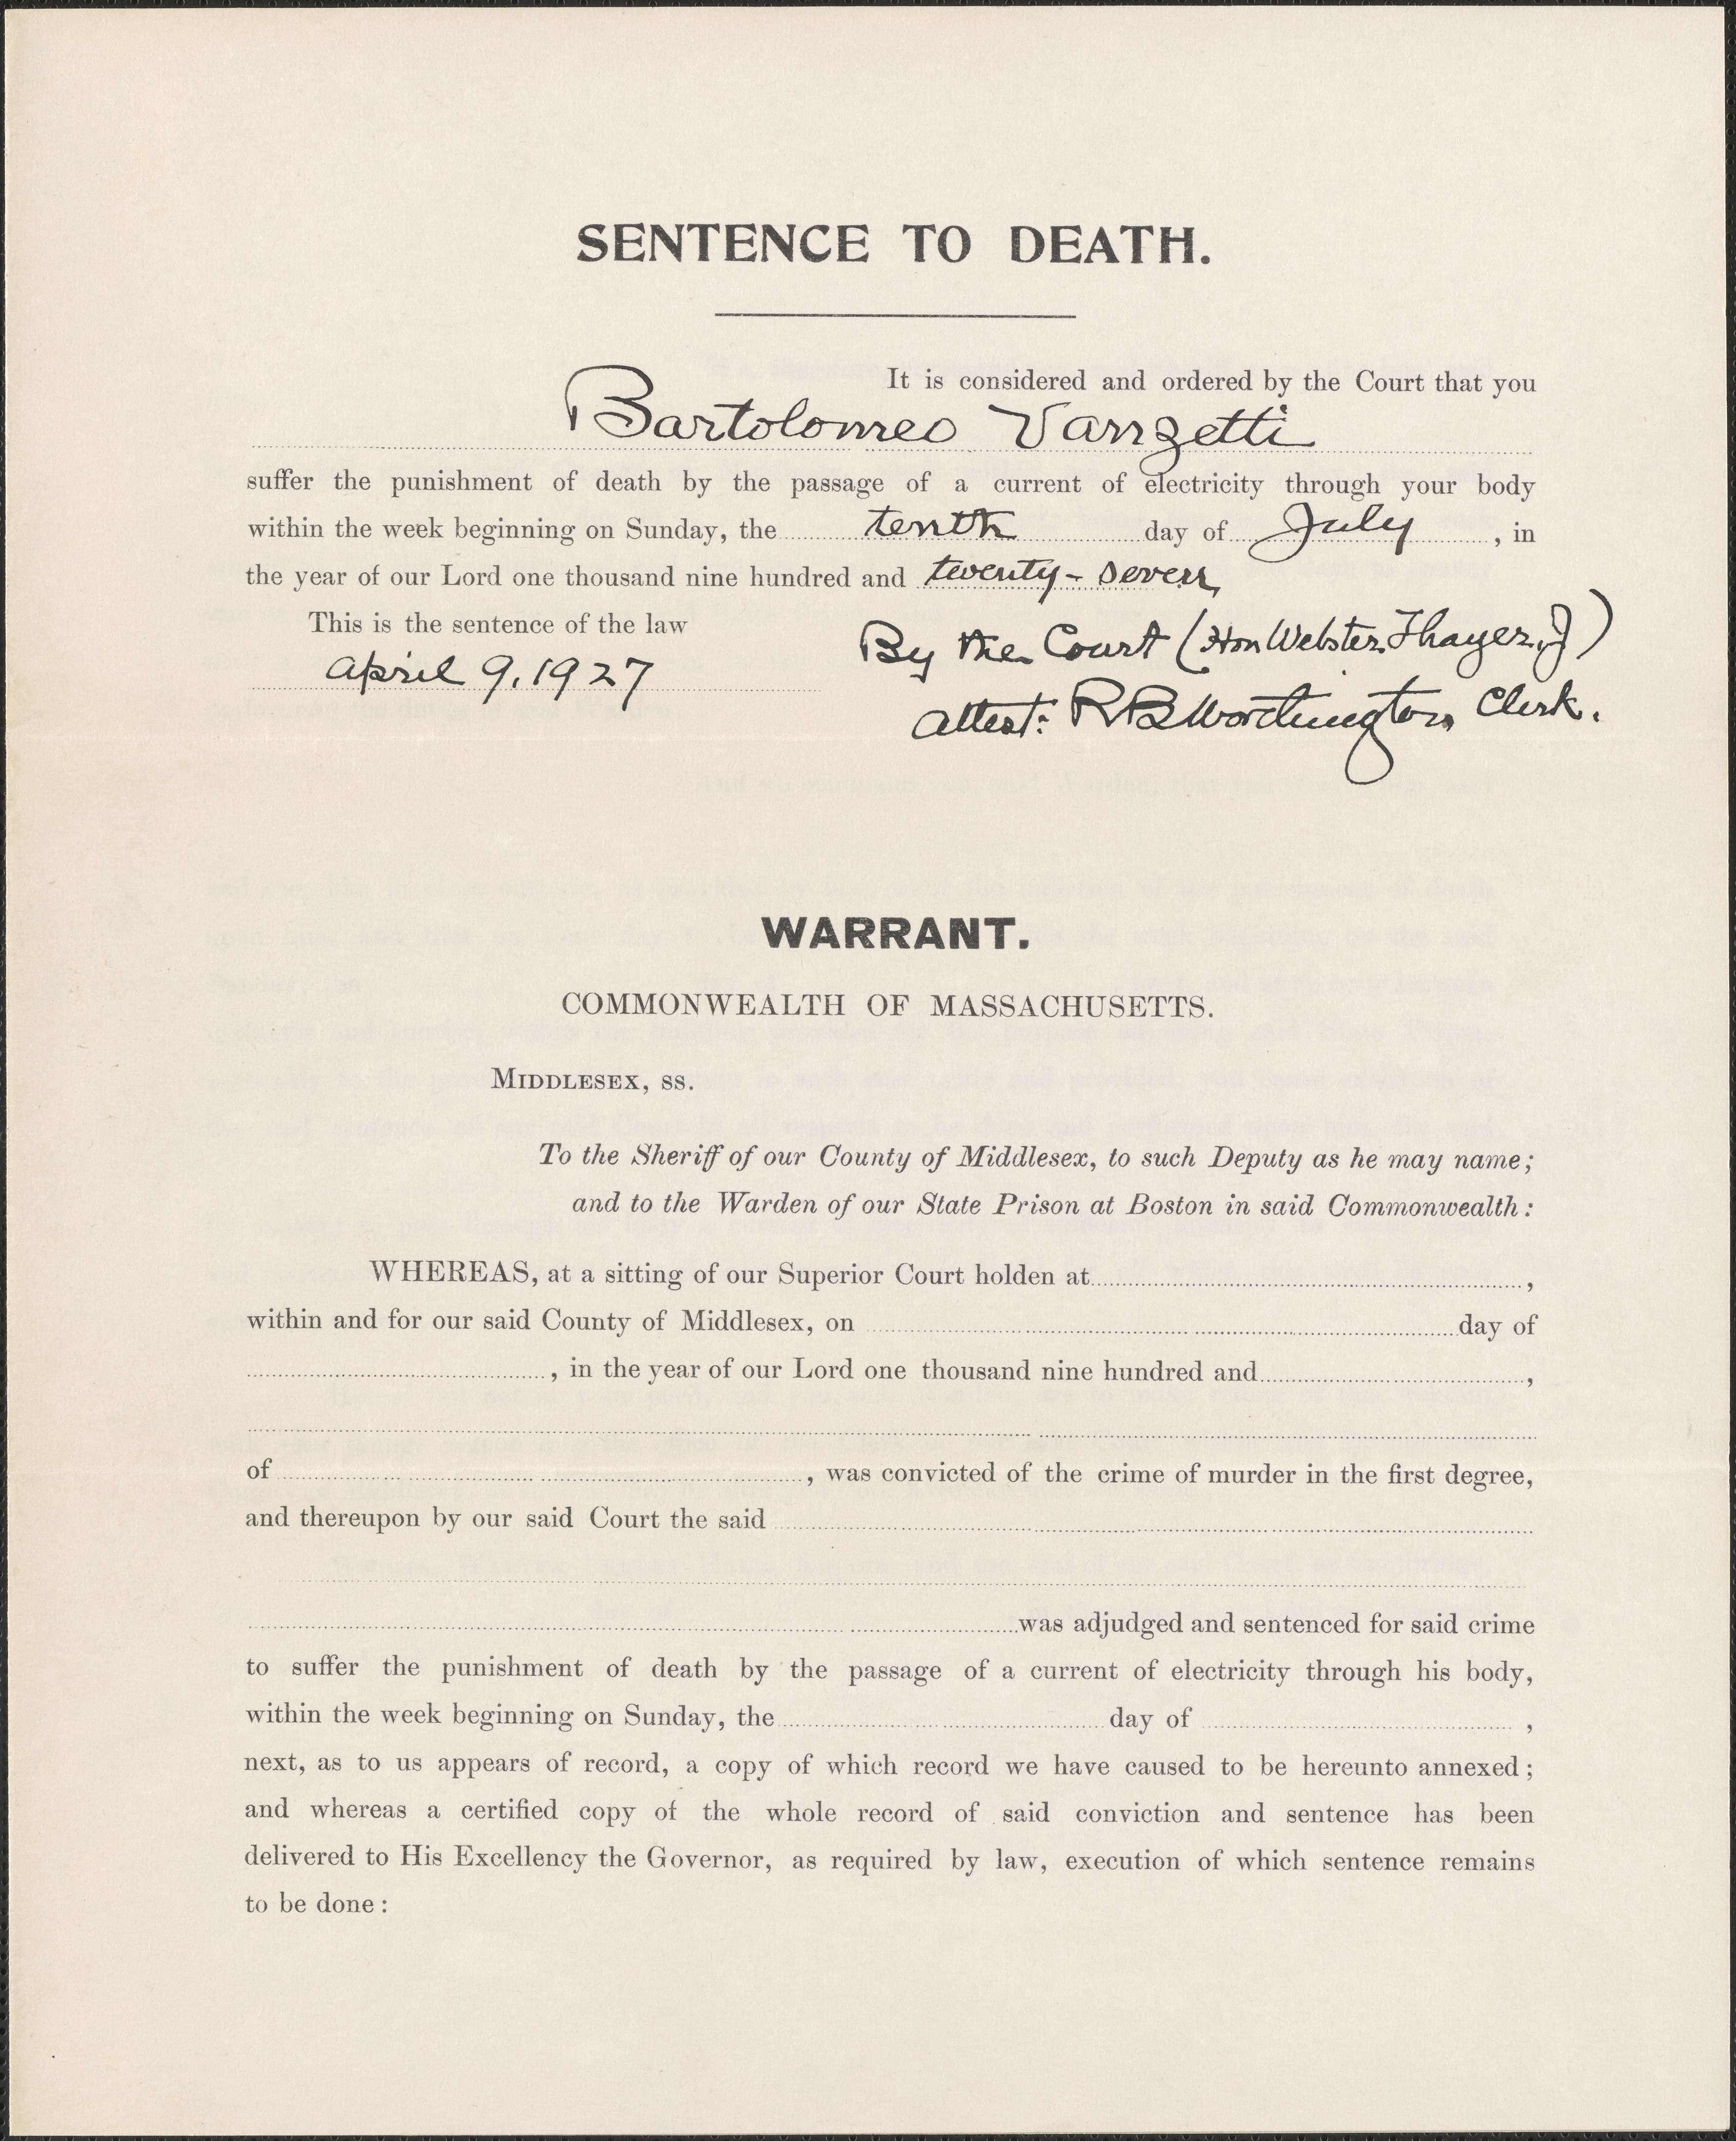 SENTENCE TO DEATH.
It is considered and ordered by the Court that you
Bartolomeo Vanzetti
suffer the punishment of death by the passage of a current of electricity through your body
within the week beginning on Sunday, the tenth day of July, in
the year of our Lord one thousand nine hundred and twenty-seven,
This is the sentence of the law
By the Court (Hon Webster Thayer, J)
April 9, 1927
Attest: R B Worthington Clerk.
WARRANT.
COMMONWEALTH OF MASSACHUSETTS.
MIDDLESEX, SS.
To the Sheriff of our County of Middlesex, to such Deputy as he may name;
and to the Warden of our State Prison at Boston in said Commonwealth:
WHEREAS, at a sitting of our Superior Court holden at ,
within and for our said County of Middlesex, on day of
, in the year of our Lord one thousand nine hundred and ,
of , was convicted of the crime of murder in the first degree,
and thereupon by our said Court the said
was adjudged and sentenced for said crime
to suffer the punishment of death by the passage of a current of electricity through his body,
within the week beginning on Sunday, the day of ,
next, as to us appears of record, a copy of which record we have caused to be hereunto annexed;
and whereas a certified copy of the whole record of said conviction and sentence has been
delivered to His Excellency the Governor, as required by law, execution of which sentence remains
to be done: